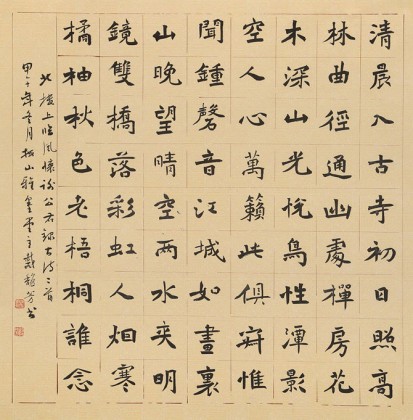 清晨入古寺初日照高
林曲徑通幽處禪房花
木深山光悅鳥性潭影
空人心萬籟此俱寂惟
聞鍾磬音江城如畫裏
山晚望晴空兩水夾明
鏡雙橋落彩虹人烟寒
橘柚秋色老梧桐誰念
北樓上臨風懷謝公右録古诗二首
甲午年冬月